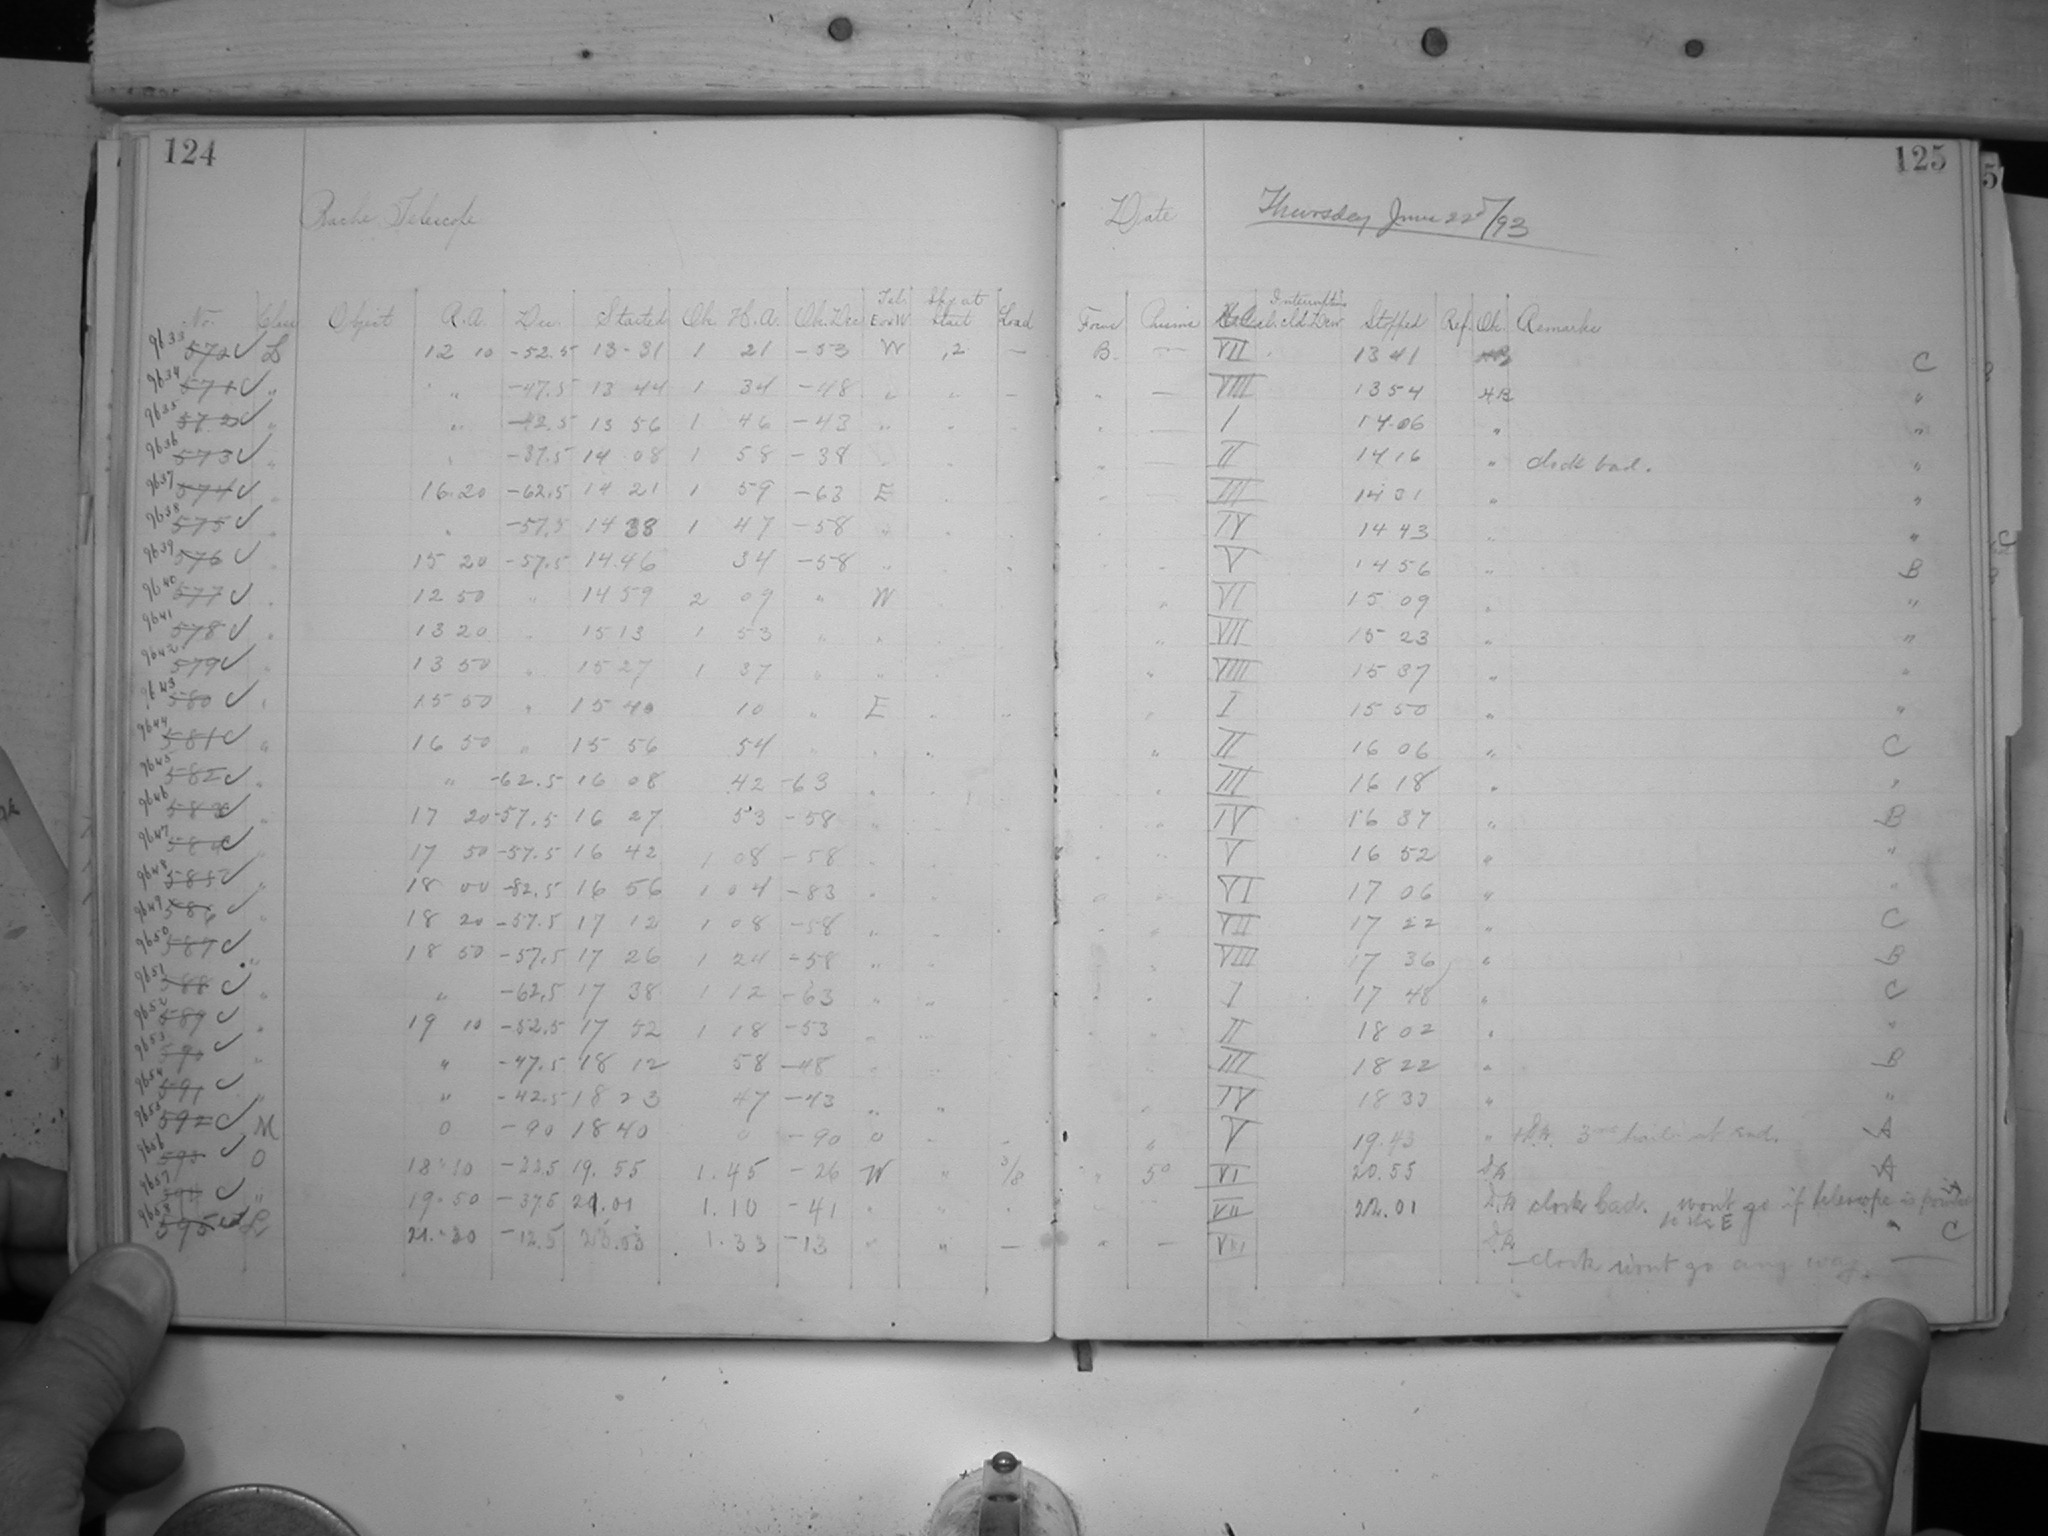 124
125
5
Bache Telescope
Date Thursday June 22d/93
No. Class Object R.A. Dec. Started Ch. H.A. Ch. Dec Tel. E or W Sky at Start Load Focus Prisms Interruptions Stopped Ref. Ob. Remarks
9633 572 L 12 10 -52.5 13-31 1 21 -53 W ,2 — B — VII 13 41 C
9634 571 " " -47.5 13 44 1 34 -48 " " — " — VIII 13 54 HB "
9635 572 " " -42.5 13 56 1 46 -43 " " " — I 14.06 " "
9636 573 " " -37.5 14 08 1 58 -38 " — II 14 16 " clock bad. "
9637 574 " 16 20 -62.5 14 21 1 59 -63 E — III 14 31 " "
9638 575 " " -57.5 14 38 1 47 -58 " IV 14 43 " "
9639 576 " 15 20 -57.5 14.46 34 -58 " V 14 56 " B
9640 577 " 12 50 " 14 59 2 09 " W " VI 15 09 " "
9641 578 " 13 20 " 15 13 1 53 " " " VII 15 23 " "
9642 579 " 13 50 " 15 27 1 37 " " " VIII 15 37 " "
9643 580 " 15 50 " 15 40 10 " E " I 15 50 " "
9644 581 " 16 50 " 15 56 54 " " " II 16 06 " C
9645 582 " " -62.5 16 08 42 -63 " " III 16 18 " "
9646 583 " 17 20 -57.5 16 27 53 -58 " " IV 16 37 " B
9647 584 " 17 50 -57.5 16 42 1 08 -58 " " V 16 52 " "
9648 585 " 18 00 -82.5 16 56 1 04 -83 " " VI 17 06 " "
9649 586 " 18 20 -57.5 17 12 1 08 -58 " " VII 17 22 " C
9650 587 " 18 50 -57.5 17 26 1 24 -58 " " VIII 17 36 " B
9651 588 " " -62.5 17 38 1 12 -63 " " " I 17 48 " C
9652 589 " 19 10 -52.5 17 52 1 18 -53 " " " II 18 02 " "
9653 590 " " -47.5 18 12 58 -48 " " III 18 22 " B
9654 591 " " -42.5 18 23 47 -43 " " " IV 18 33 " "
9655 592 M 0 -90 18 40 0 -90 0 " V 19.43 " at end. A
9656 593 O 18 10 -22.5 19.55 1.45 -26 W " 3/8 " 50 VI 20.55 A
9657 594 " 19.50 -37.5 1.10 -41 " " " VII 22.01 clock bad. won't go if telescope is pointed
to the E "
595 L 21.30 -12.5 23.03 1.33 -13 " " — " — VIII C
—clock wont go any way. —